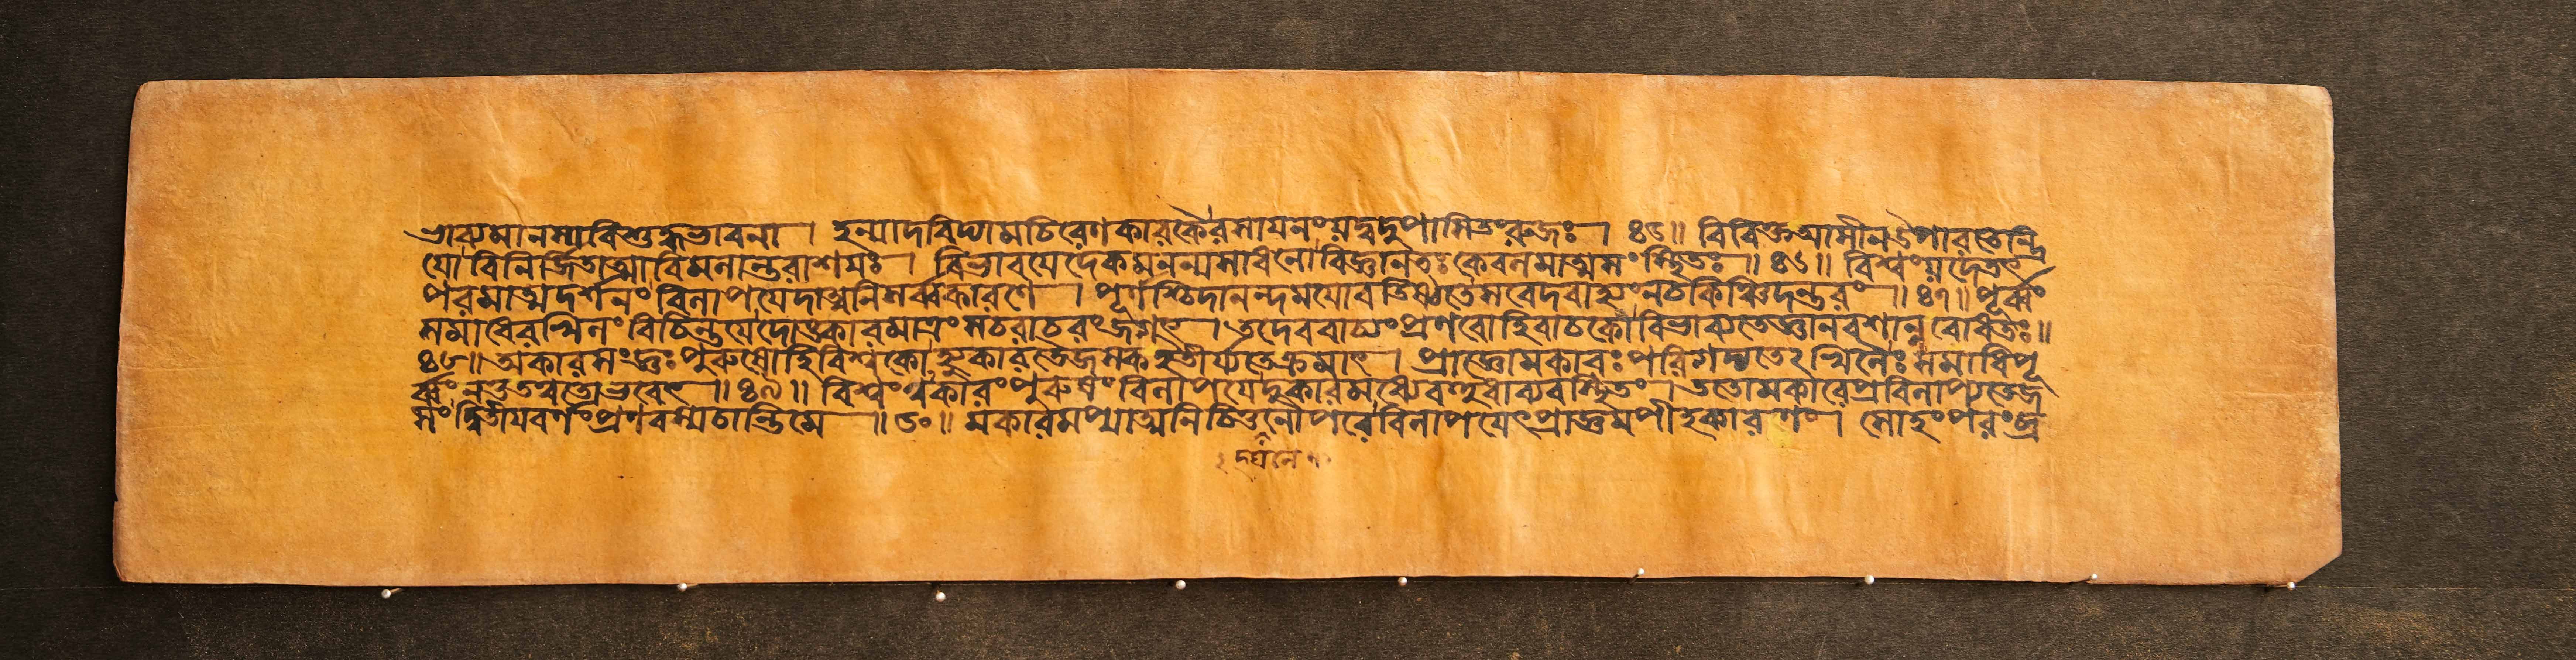 ভাব্যমানসাবিশুদ্ধভাবনা। হন্যাদবিদ্যামচিরেণকারকৈরসায়নংযদ্বদুপাসিতংরুজঃ। ৪৫॥ বিবিক্তআসীনউপারতেন্দ্রি
যোবিনির্জিতাত্মাবিমলান্তরাশয়ঃ। বিভাবয়েদেকমনন্যসাধনোবিজ্ঞানদৃঃকেবলমাত্মসংস্থিতঃ॥ ৪৬॥ বিশ্বংযদেতৎ
পরমাত্মদর্শনং বিলাপয়েদাত্মনিসর্ব্বকারণে। পূর্ণশ্চিদানন্দময়োবতিষ্ঠতেনবেদবাহ্যংনচকিঞ্চিদন্তরং॥ ৪৭॥ পূর্ব্বং
সমাধেরখিলং বিচিন্তয়েদোঙ্কারমাত্রং সচরাচরংজগৎ। তদেববাচ্যংপ্রণবোহিবাচকোবিভাব্যতেজ্ঞানবশান্নবোধতঃ॥
৪৮॥ অকারসংজ্ঞঃপুরুষোহিবিশ্বকোহ্যুকারস্তৈজসকইতীর্য্যতেক্রমাৎ। প্রাজ্ঞোমকারঃপরিপঠ্যতেঽখিলৈঃসমাধিপূ
র্ব্বংনতুতত্ত্বতোভবেৎ॥ ৪৯॥ বিশ্বংত্বকারংপুরুষং বিলাপয়েদুকারমধ্যেবহুধাব্যবস্থিতং। ততোমকারেপ্রবিলাপ্যতৈজ
সংদ্বিতীয়বর্ণংপ্রণবস্যচান্তিমে॥ ৫০॥ মকারমপ্যাত্মনিচিদ্ঘনেপরেবিলাপয়েৎপ্রাজ্ঞমপীহকারণং। সোহংপরংব্র